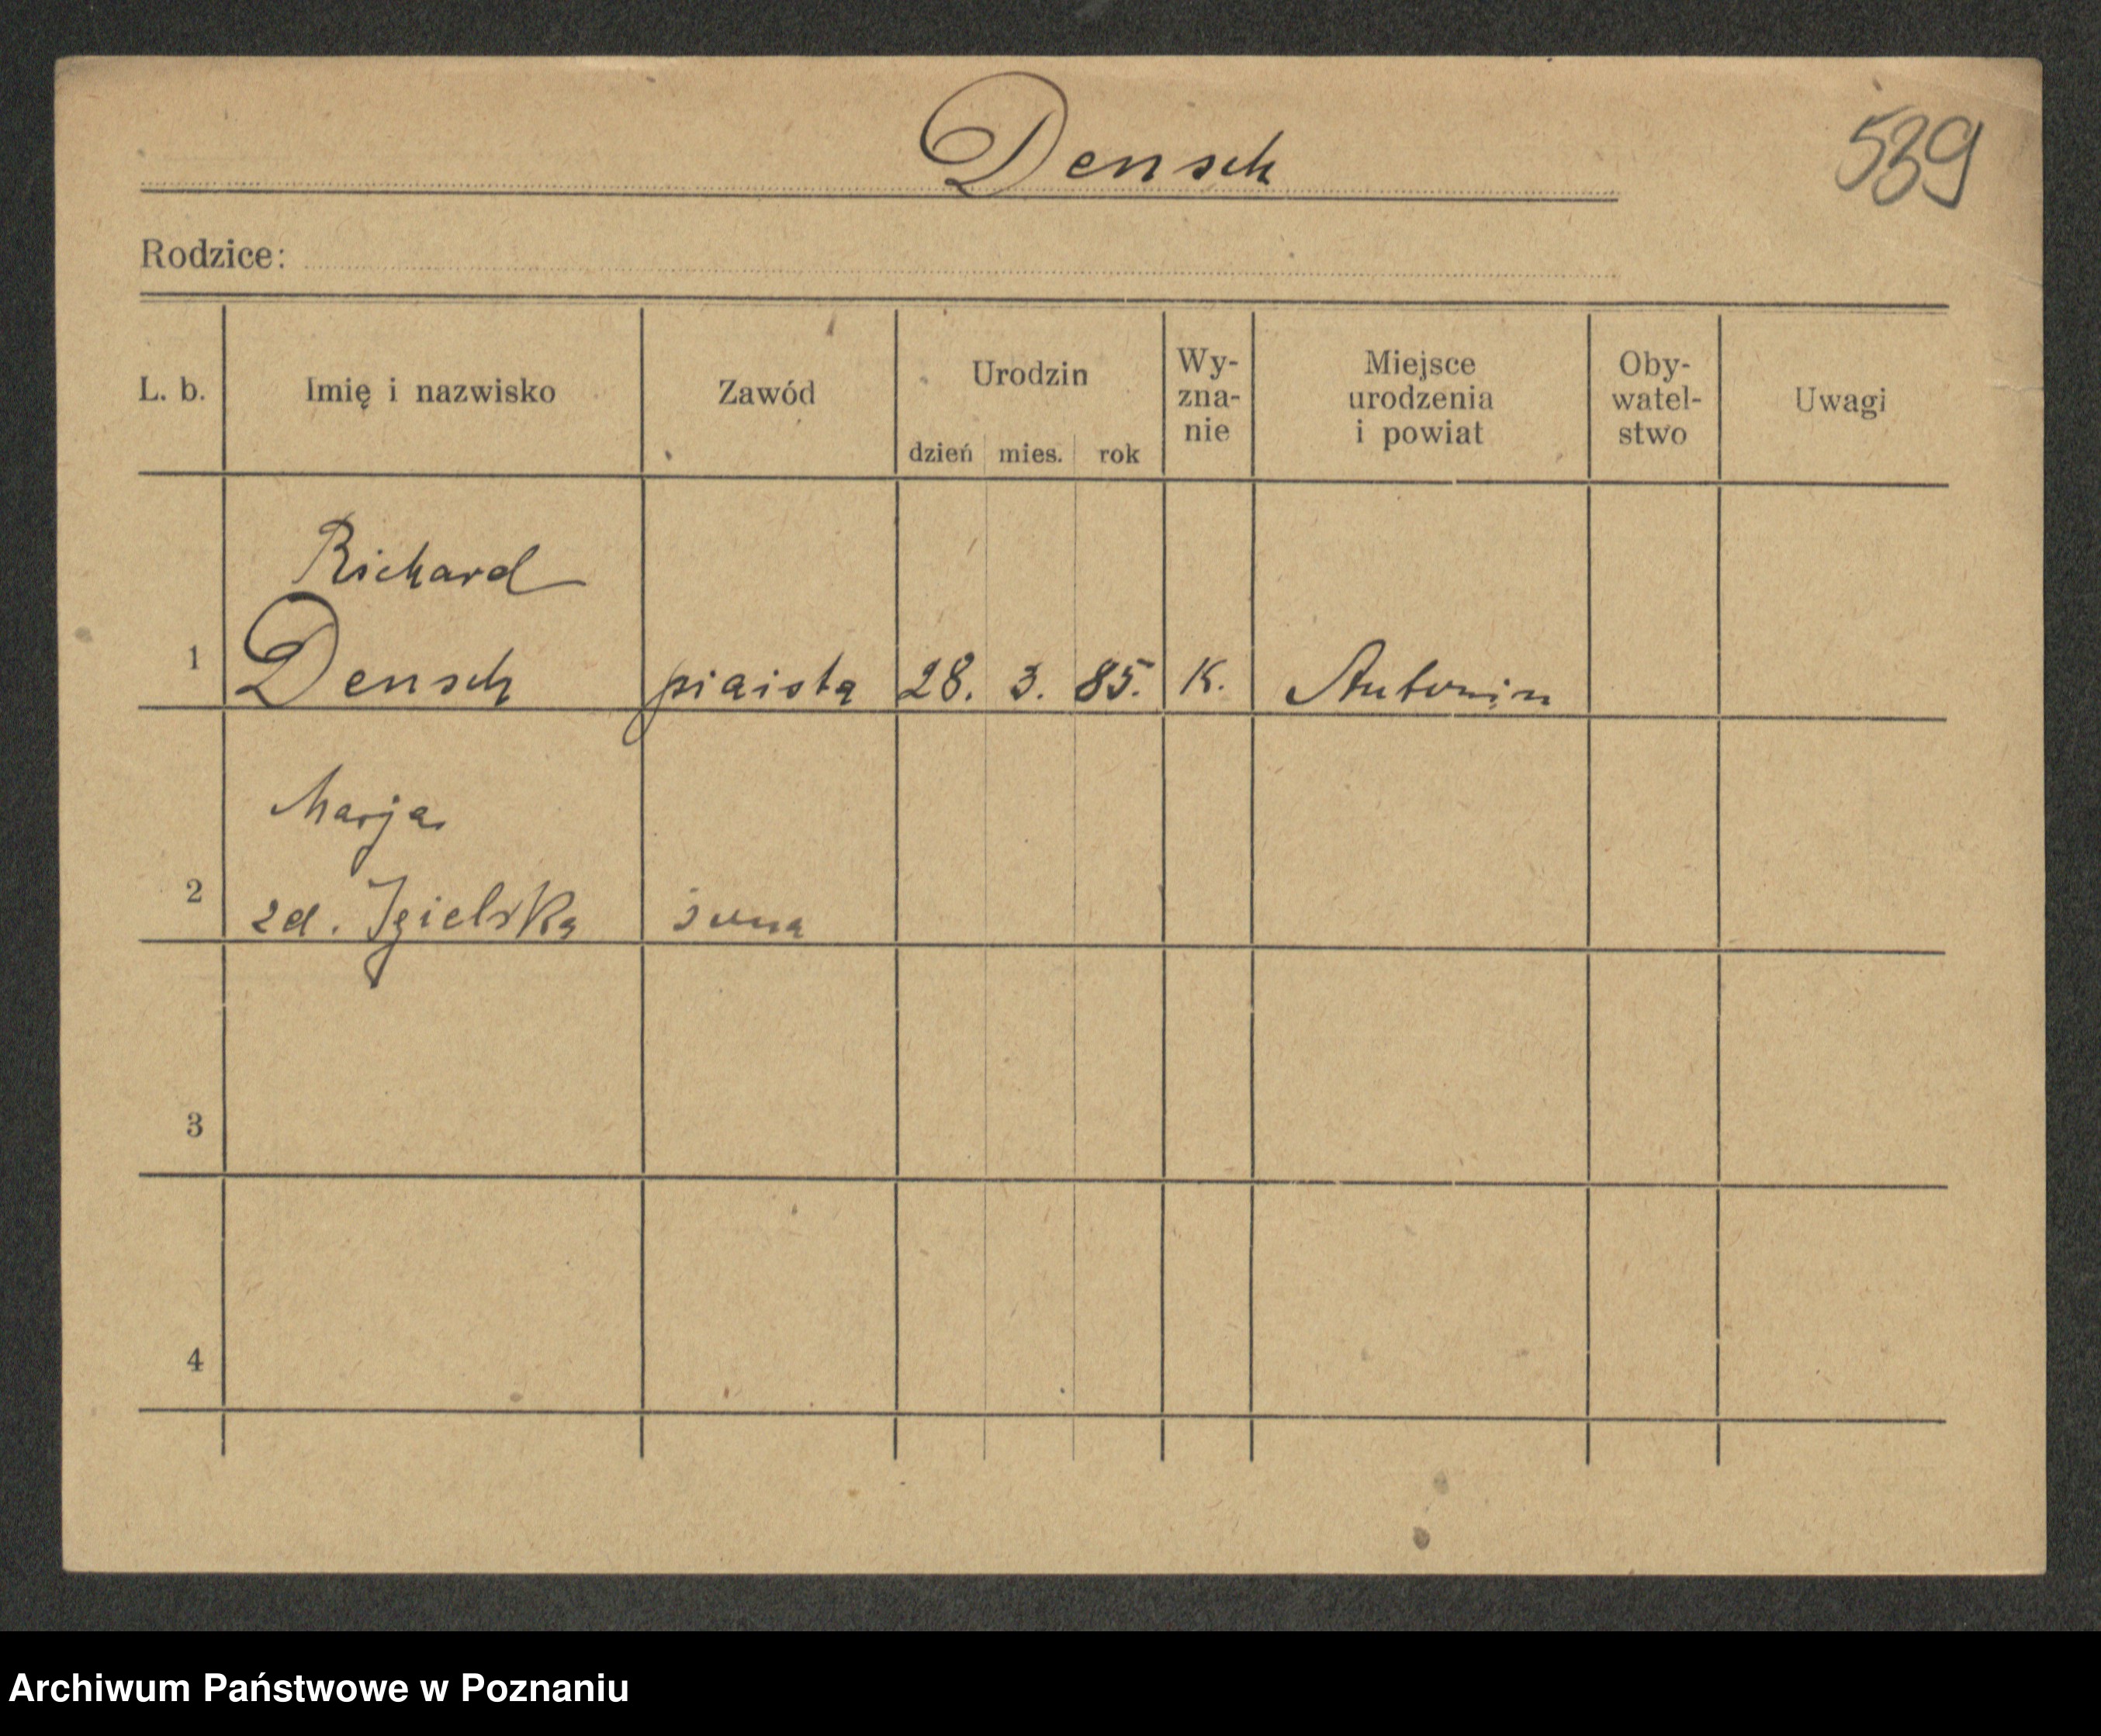 Densch
539
Rodzice:
L. b.
Imię i nazwisko
Zawód
Urodzin
dzień mies. rok
Wy-
zna-
nie
Miejsce
urodzenia
i powiat
Oby-
watel-
stwo
Uwagi
Richard
1 Densch piaista 28. 3. 85. K. Antonin
Marja
2 zd. Igielska żona
3
4
Archiwum Państwowe w Poznaniu